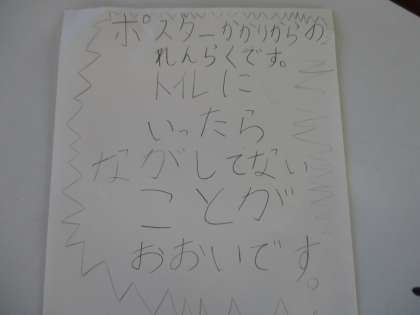 ポスターかかりからの
れんらくです。
トイレに
いったら
ながしてない
ことが
おおいです。